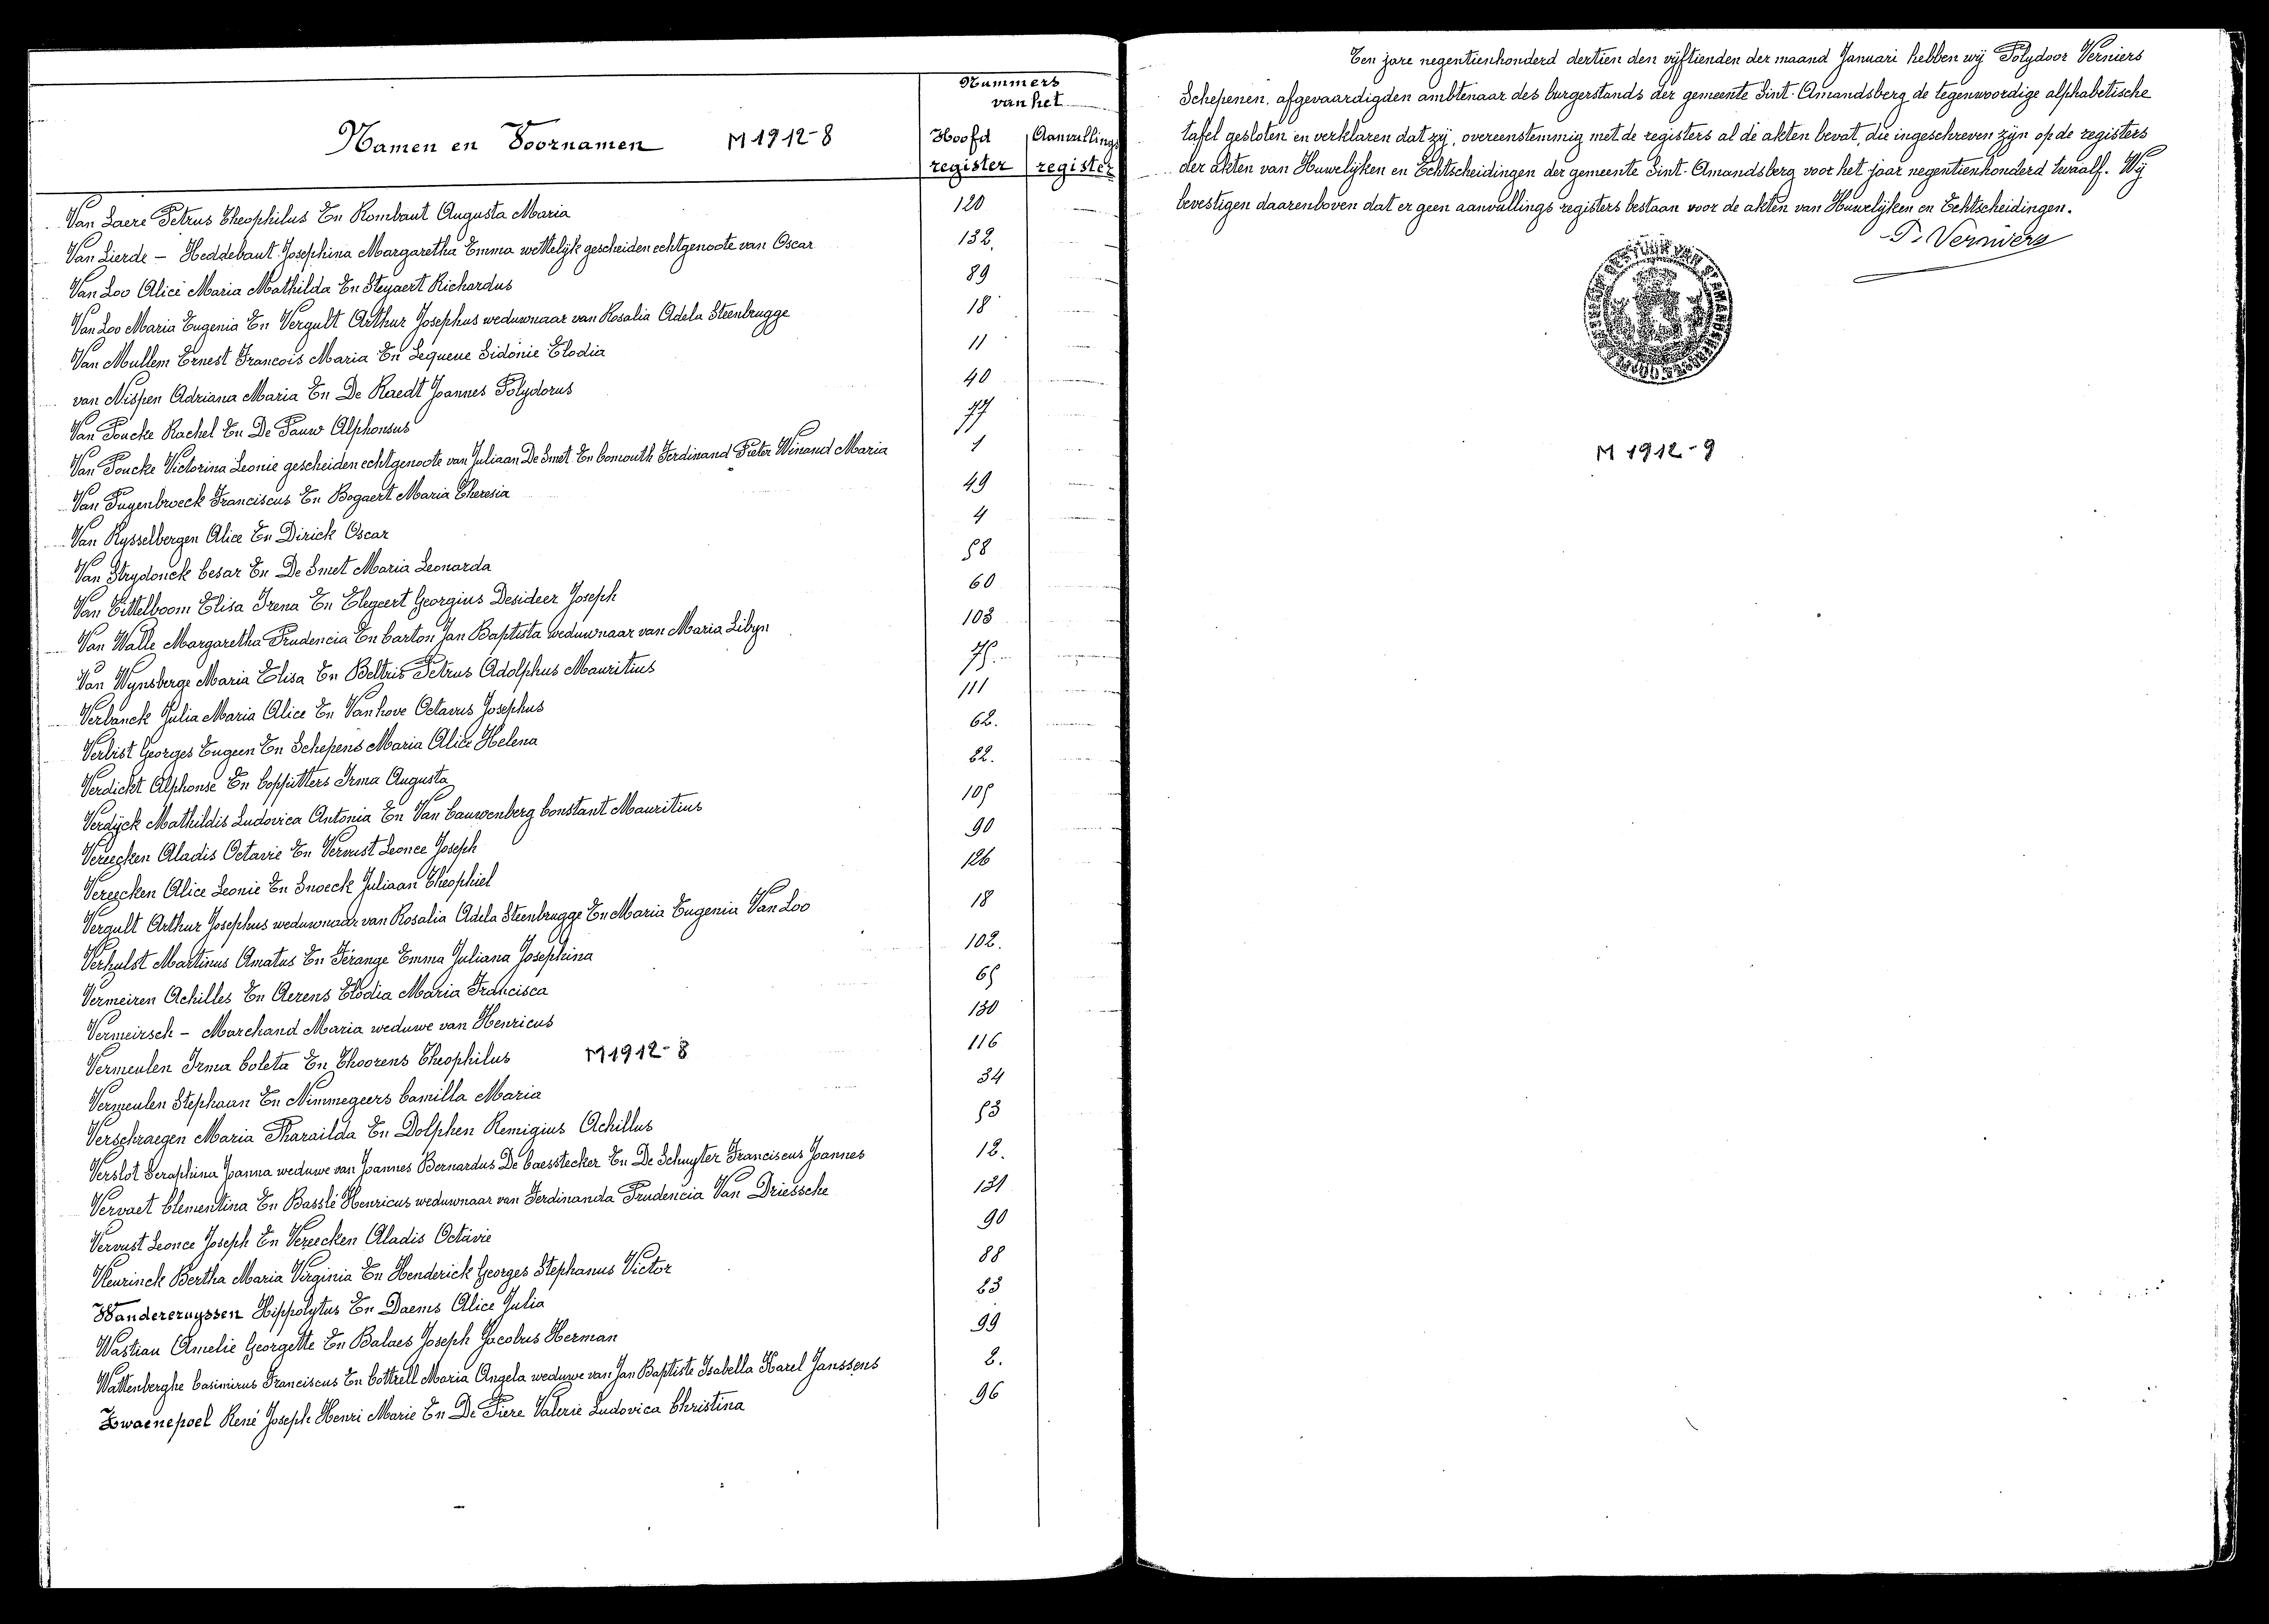 Nummers
van het
Namen en Voornamen M 1912-8 Hoofd Aanvullings
register register
Van Laere Petrus Theophilus En Rombaut Augusta Maria 120
Van Lierde - Heddebaut Josephina Margaretha Emma wettelijk gescheiden echtgenoote van Oscar 132.
Van Loo Alice Maria Mathilda En Steyaert Richardus 89
Van Loo Maria Eugenia En Vergult Arthur Josephus weduwnaar van Rosalia Adela Steenbrugge 18
Van Mullem Ernest Francois Maria En Lequeue Sidonie Elodia 11
van Nispen Adriana Maria En De Raedt Joannes Polydorus 40
Van Poucke Rachel En De Pauw Alphonsus 77
Van Poucke Victorina Leonie gescheiden echtgenoote van Juliaan De Smet En Comouth Ferdinand Pieter Winand Maria 1
Van Puyenbroeck Franciscus En Bogaert Maria Theresia 49
Van Rysselbergen Alice En Dirick Oscar 4
Van Strydonck Cesar En De Smet Maria Leonarda 58
Van Tittelboom Elisa Irena En Elegeert Georgius Desideer Joseph 60
Van Walle Margaretha Prudencia En Carton Jan Baptista weduwnaar van Maria Libyn 103
Van Wynsberge Maria Elisa En Beltris Petrus Adolphus Mauritius 75.
Verbanck Julia Maria Alice En Vanhove Octavus Josephus 111
Verbist Georges Eugeen En Schepens Maria Alice Helena 62.
Verdickt Alphonse En Coppitters Irma Augusta 22.
Verdijck Mathildis Ludovica Antonia En Van Cauwenberg Constant Mauritius 105
Vereecken Aladis Octavie En Vervust Leonce Joseph 90
Vereecken Alice Leonie En Snoeck Juliaan Theophiel 126
Vergult Arthur Josephus weduwnaar van Rosalia Adela Steenbrugge En Maria Eugenia Van Loo 18
Verhulst Martinus Amatus En Férange Emma Juliana Josephina 102.
Vermeiren Achilles En Aerens Elodia Maria Francisca 65
Vermeirsch - Marchand Maria weduwe van Henricus 130
Vermeulen Irma Coleta En Thoorens Theophilus M 1912-8 116
Vermeulen Stephaan En Nimmegeers Camilla Maria 34
Verschraegen Maria Pharailda En Dolphen Remigius Achillus 53
Verslot Seraphina Joanna weduwe van Joannes Bernardus De Caesstecker En De Schuyter Franciscus Joannes 12.
Vervaet Clementina En Basslé Henricus weduwnaar van Ferdinanda Prudencia Van Driessche 131
Vervust Leonce Joseph En Vereecken Aladis Octavie 90
Vleurinck Bertha Maria Virginia En Henderick Georges Stephanus Victor 88
Wandereruyssen Hippolytus En Daems Alice Julia 23
Wastiau Amelie Georgette En Balaes Joseph Jacobus Herman 99
Wattenberghe Casimirus Franciscus En Cottrell Maria Angela weduwe van Jan Baptiste Isabella Karel Janssens 2.
Zwaenepoel René Joseph Henri Marie En De Piere Valerie Ludovica Christina 96
Ten jare negentienhonderd dertien den vijftienden der maand Januari hebben wij Polydoor Verniers
Schepenen, afgevaardigden ambtenaar des burgerstands der gemeente Sint-Amandsberg de tegenwoordige alphabetische
tafel gesloten en verklaren dat zij, overeenstemmig met de registers al de akten bevat, die ingeschreven zijn op de registers
der akten van Huwelijken en Echtscheidingen der gemeente Sint-Amandsberg voor het jaar negentienhonderd twaalf. Wij
bevestigen daarenboven dat er geen aanvullings registers bestaan voor de akten van Huwelijken en Echtscheidingen.
P. Verniers
M 1912-9